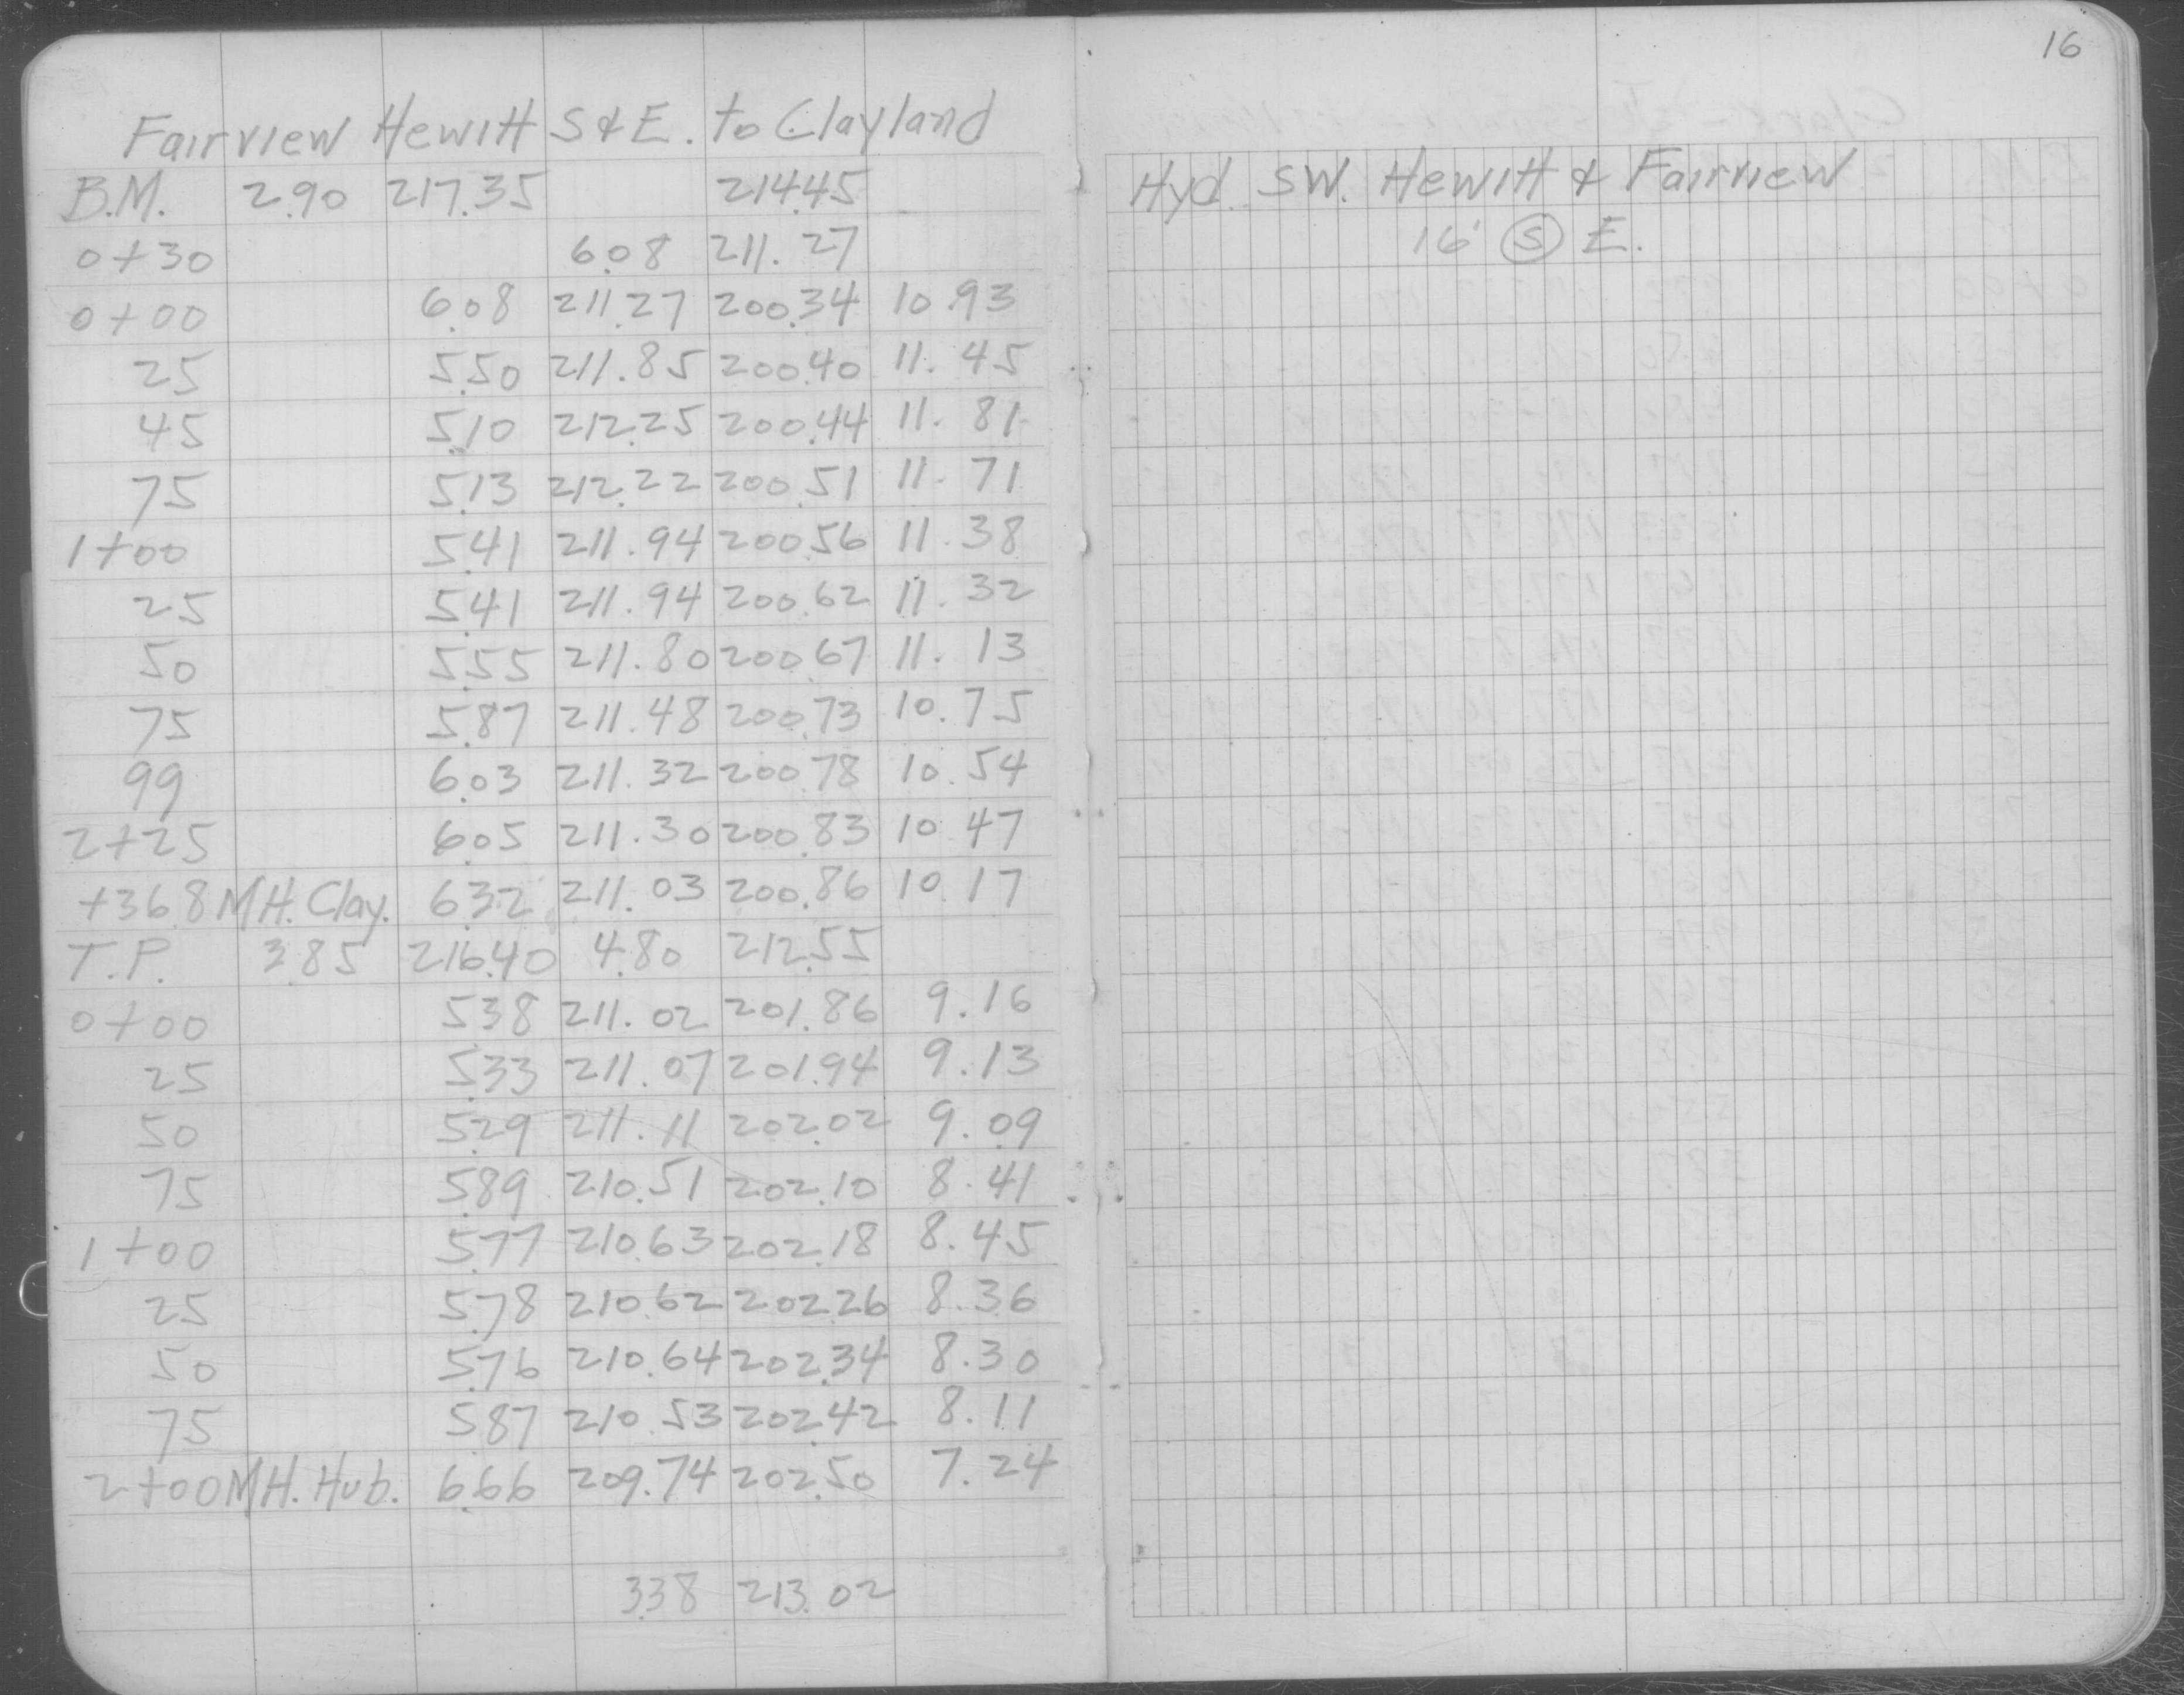 16
Fairview Hewitt S & E. to Clayland
B.M. 2.90 217.35 214.45
0+30 6.08 211.27
0+00 6.08 211.27 200.34 10.93
25 5.50 211.85 200.40 11.45
45 5.10 212.25 200.44 11.81
75 5.13 212.22 200.51 11.71
1+00 5.41 211.94 200.56 11.38
25 5.41 211.94 200.62 11.32
50 5.55 211.80 200.67 11.13
75 5.87 211.48 200.73 10.75
99 6.03 211.32 200.78 10.54
2+25 6.05 211.30 200.83 10.47
+36.8 MH. Clay. 6.32 211.03 200.86 10.17
T.P. 3.85 216.40 4.80 212.55
0+00 5.38 211.02 201.86 9.16
25 5.33 211.07 201.94 9.13
50 5.29 211.11 202.02 9.09
75 5.89 210.51 202.10 8.41
1+00 5.77 210.63 202.18 8.45
25 5.78 210.62 202.26 8.36
50 5.76 210.64 202.34 8.30
75 5.87 210.53 202.42 8.11
2+00 MH. Hub. 6.66 209.74 202.50 7.24
3.38 213.02
Hyd. SW. Hewitt & Fairview
16' S E.